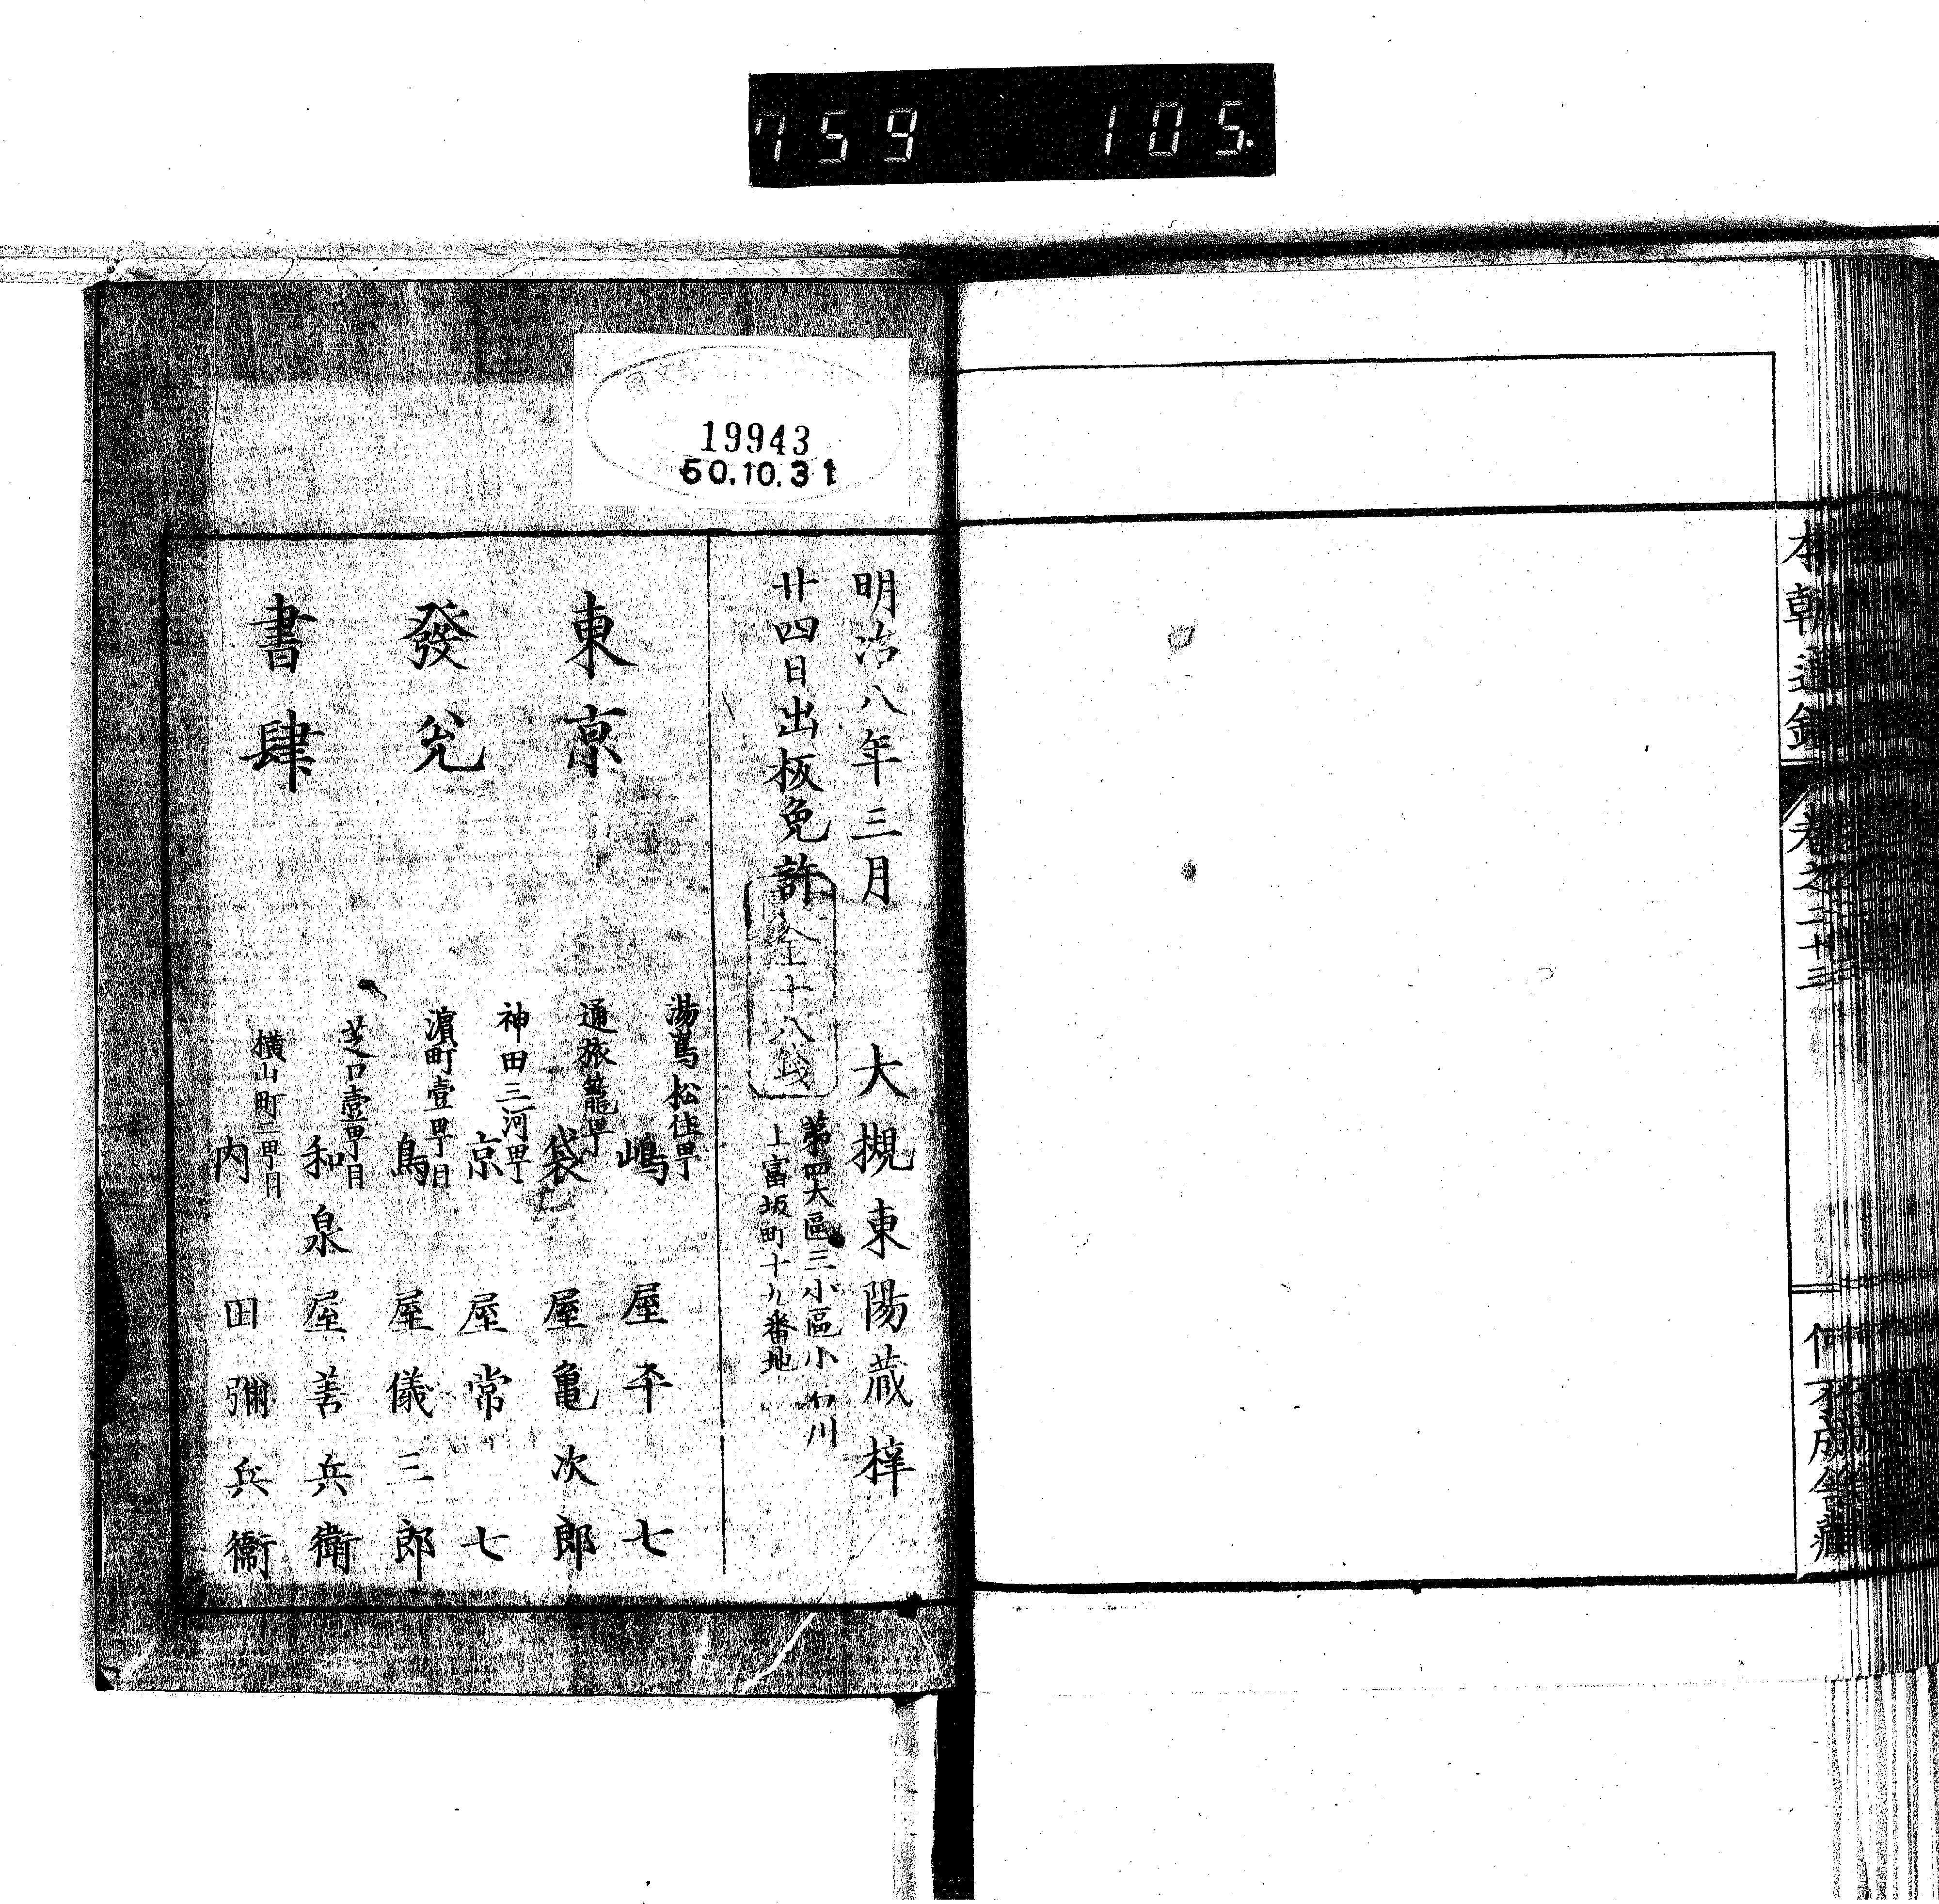 759 105.
本朝
卷之二十三
19943
50.10.31
明治八年三月
廿四日出板免許
金十八錢
大槻東陽蔵梓
第四大區三小區小石川
上富坂町十九番地
東京
發兌
書肆
湯嶌松住町
嶋屋平七
通旅籠町
袋屋亀次郎
神田三河町
京屋常七
濵町壹町目
鳥屋儀三郎
芝口壹町目
和泉屋善兵衛
横山町二町目
内田彌兵衞